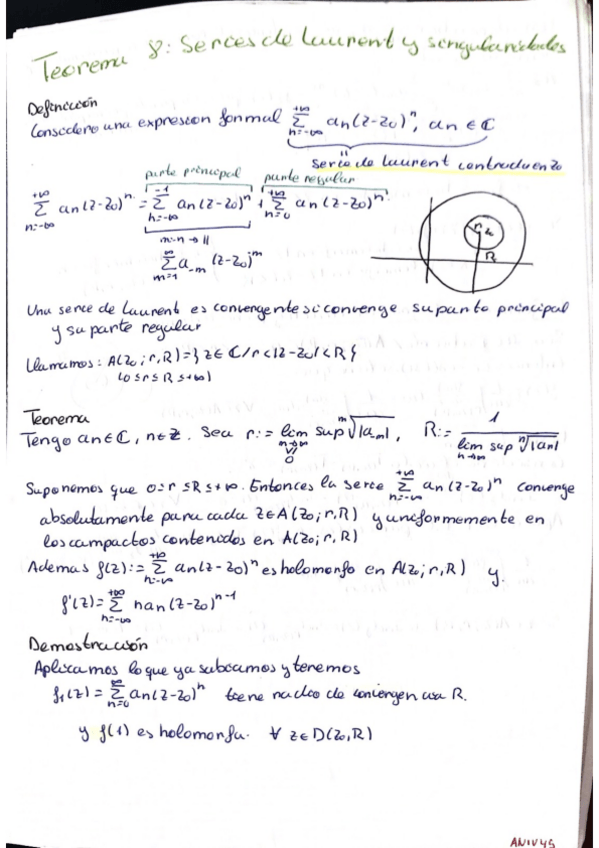 Teorema 8: Series de Laurent y singularidades
Definición
Considero una expresion formal \sum_{n=-∞}^{+∞} an(z-z0)^n, an ∈ ℂ
serie de Laurent centrada en z0
parte principal parte regular
\sum_{n=-∞}^{+∞} an(z-z0)^n = \sum_{n=-∞}^{-1} an(z-z0)^n + \sum_{n=0}^{+∞} an(z-z0)^n
\sum_{m=1}^{∞} a_{-m} (z-z0)^m
r z0
R
Una serie de Laurent es convergente si converge su parte principal
y su parte regular
Llamamos: A(z0; r, R) = { z ∈ ℂ / r < |z-z0| < R }
(0 ≤ r ≤ R ≤ +∞)
Teorema
Tengo an ∈ ℂ, n ∈ ℤ. Sea r := lim sup \sqrt[m]{|a_{-m}|}, R := \frac{1}{lim sup_{n→∞} \sqrt[n]{|an|}}
Suponemos que 0 ≤ r ≤ R ≤ +∞. Entonces la serie \sum_{n=-∞}^{+∞} an(z-z0)^n converge
absolutamente para cada z ∈ A(z0; r, R) y uniformemente en
los compactos contenidos en A(z0; r, R)
Ademas f(z) := \sum_{n=-∞}^{+∞} an(z-z0)^n es holomorfo en A(z0; r, R) y
f'(z) = \sum_{n=-∞}^{+∞} nan(z-z0)^{n-1}
Demostración
Aplicamos lo que ya sabiamos y tenemos
f1(z) = \sum_{n=0}^{∞} an(z-z0)^n tiene radio de convergencia R.
y f(1) es holomorfa. ∀ z ∈ D(z0, R)
ANIV45